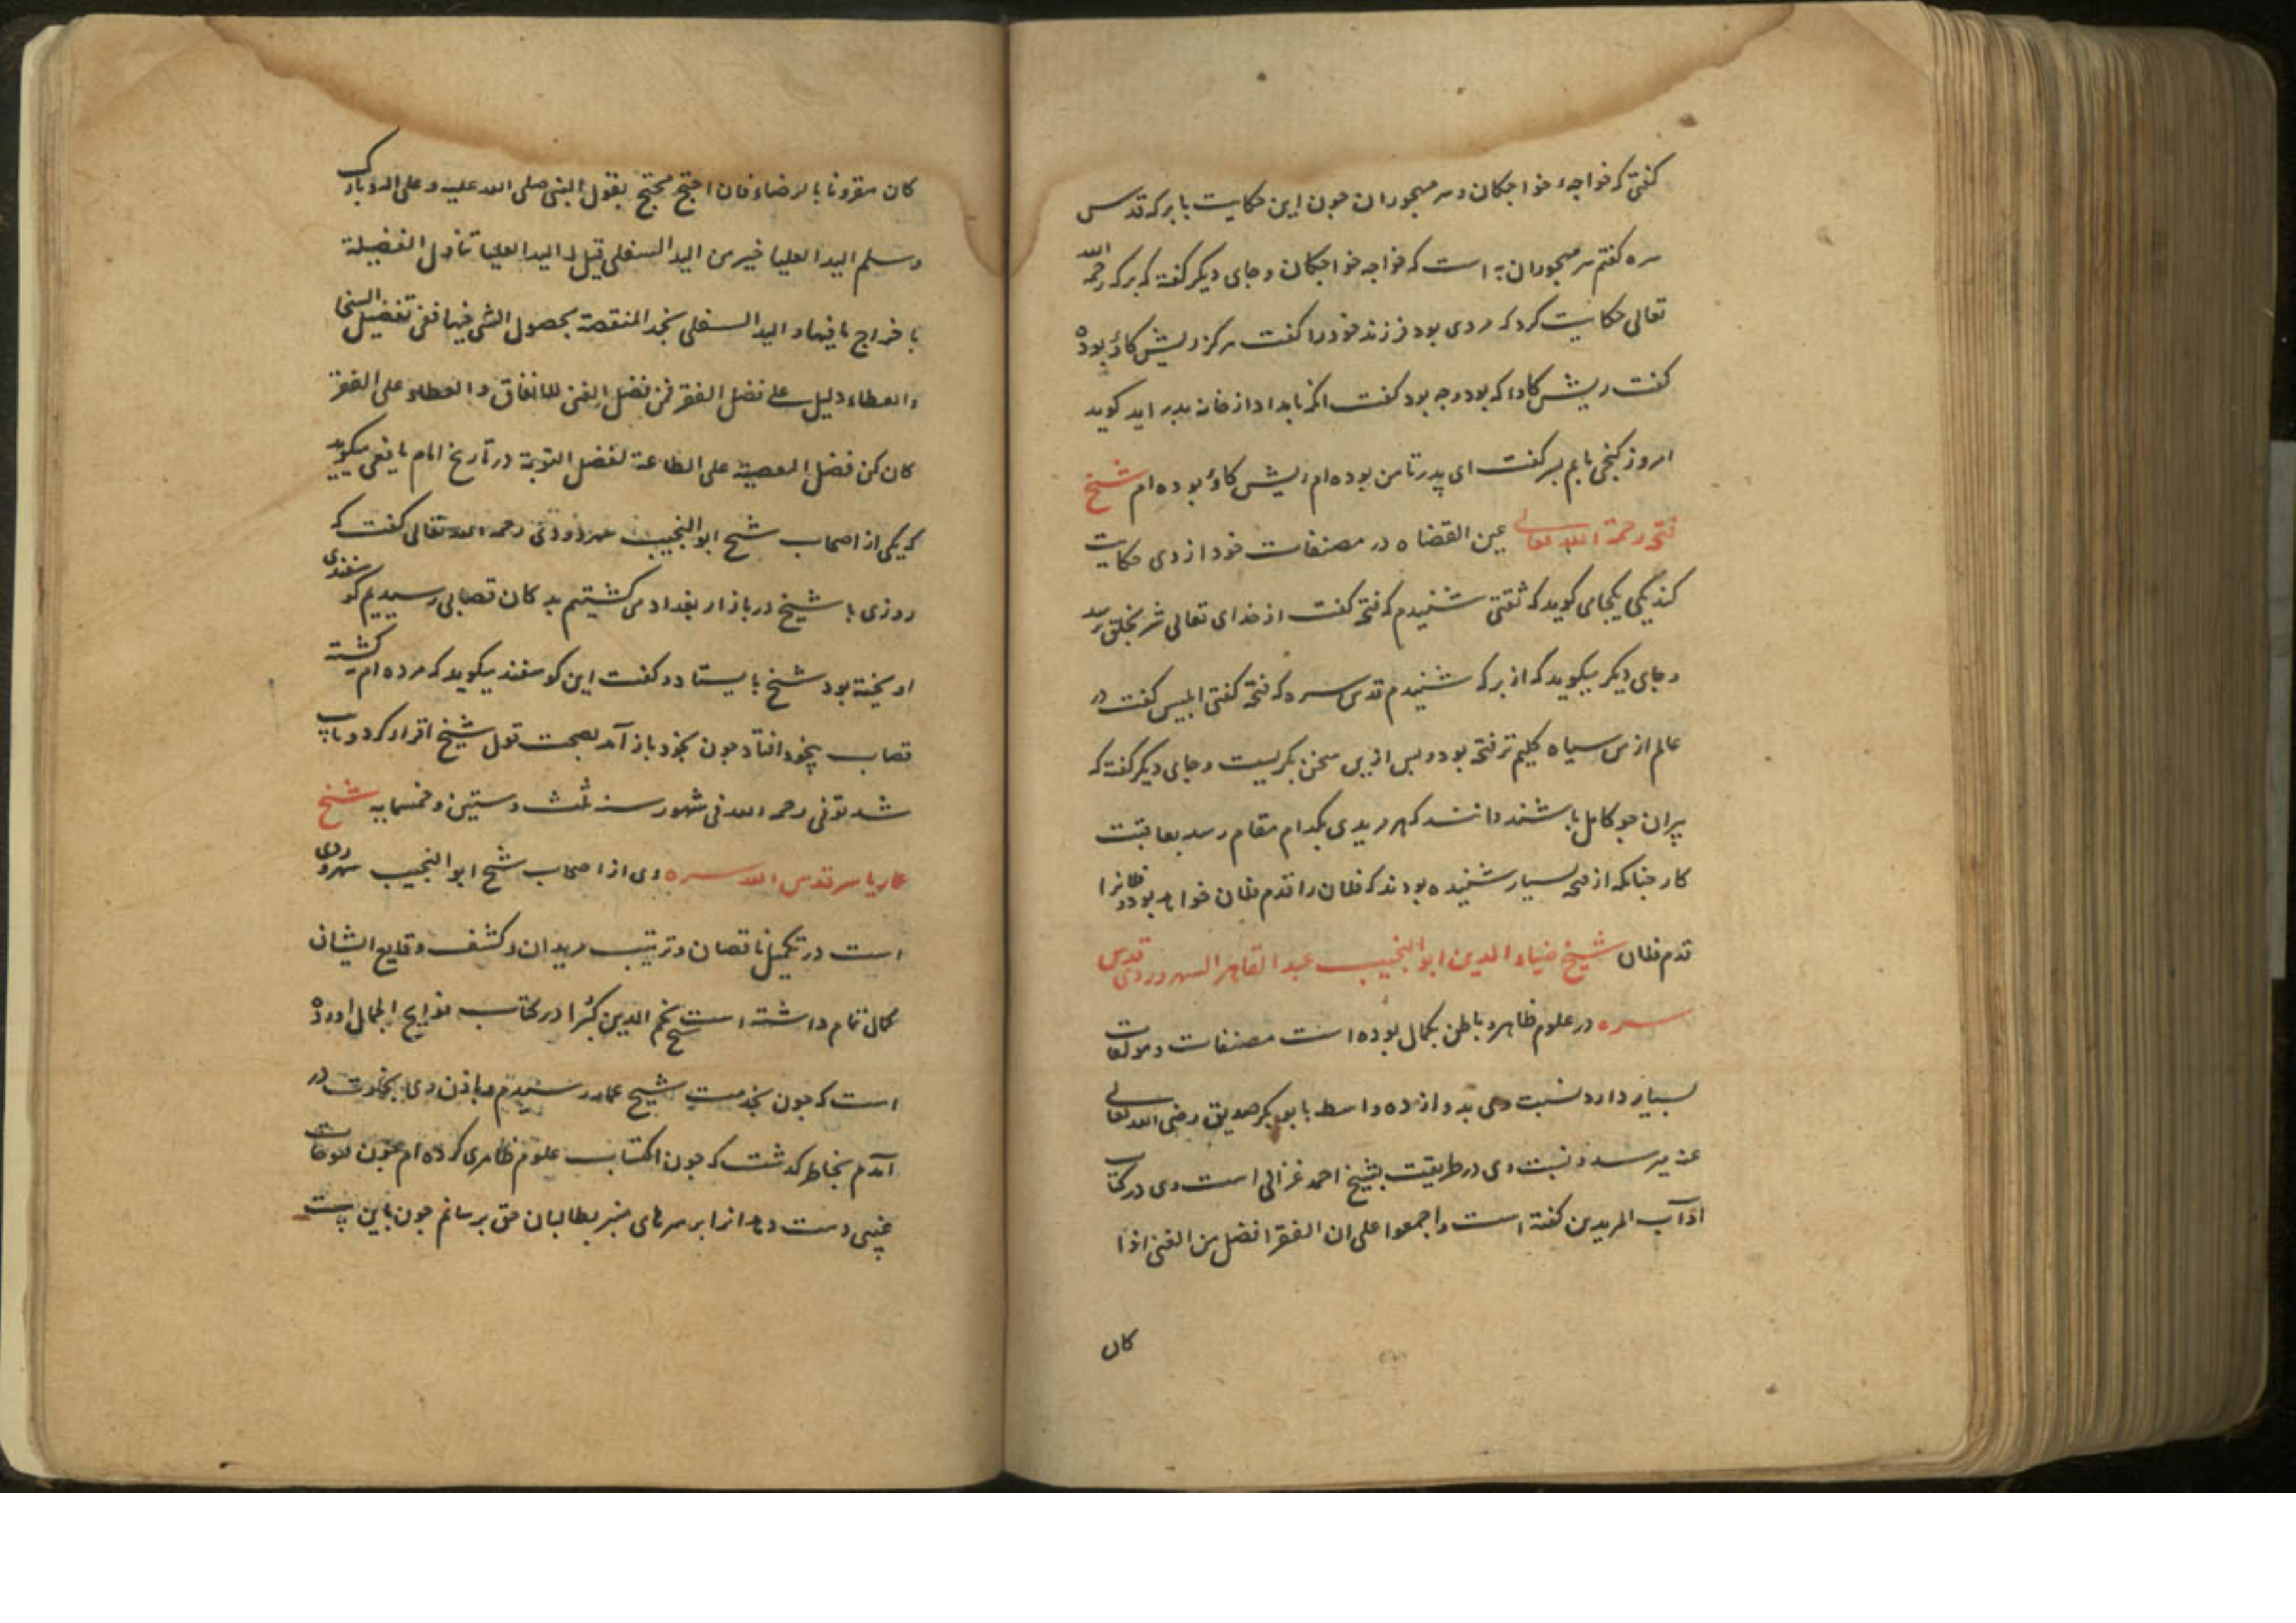 کفتی که خواجهٔ خواجکان و سر مهجوران چون این حکایت با برکه قدس
سره کفتم سر مهجوران به است که خواجه خواجکان و جای دیکر کفته که برکه رحمه الله
تعالی حکایت کرد که مردی بود فرزند خود را کفت هرکز ریش کاؤ بودهٔ
کفت ریش کاؤ که بود و چه بود کفت انکه بامداد از خانه بدر اید کوید
امروز کنجی یابم پسر کفت ای پدر تا من بوده ام ریش کاؤ بوده ام شیخ
فتحه رحمة الله تعالی عین القضاه در مصنفات خود از وی حکایت
کند یکی یکجا می کوید که ثقتی شنیدم که فتحه کفت از خدای تعالی شر بخلق رسد
و جای دیکر میکوید که از برکه شنیدم قدس سره که فتحه کفتی ابلیس کفت در
عالم از من سیاه کلیم تر فتحه بود و پس ازین سخن بکریست و جای دیکر کفته که
پیران چو کامل باشند دانند که هر مریدی بکدام مقام رسد بعاقبت
کار چنانکه از فتحه بسیار شنیده بودند که فلان را قدم فلان خواهد بود و فلانرا
قدم فلان شیخ ضیاء الدین ابو النجیب عبد القاهر السهروردی قدس
سره در علوم ظاهر و باطن بکمال بوده است مصنفات و مولفات
بسیار دارد نسبت وی بدوازده واسطه بابو بکر صدیق رضی الله تعالی
عنه میرسد و نسبت وی در طریقت بشیخ احمد غزالی است وی در کتاب
آداب المریدین کفته است واجمعوا علی ان الفقر افضل من الغنی اذا
کان
کان مقرونا بالرضاء فان احتج محتج بقول النبی صلی الله علیه و علی اله و بارک
وسلم الید العلیا خیر من الید السفلی قیل له الید العلیا تناول الفضیلة
باخراج ما فیها و الید السفلی تجد المنقصة بحصول الشی فیها ففی تفضیل السخی
والعطاء دلیل علی فضل الفقر فمن فضل الغنی للانفاق والعطاء علی الفقر
کان کمن فضل المعصیة علی الطاعة لفضل التوبة در تاریخ امام یافعی میکوید
که یکی از اصحاب شیخ ابو النجیب سهروردی رحمه الله تعالی کفت که
روزی با شیخ در بازار بغداد می کشتیم بدکان قصابی رسیدیم کوسفندی
اویخته بود شیخ بایستاد و کفت این کوسفند میکوید که مرده ام نه کشته
قصاب بیخود افتاد چون بخود باز آمد بصحت قول شیخ اقرار کرد و تایب
شد توفی رحمه الله فی شهور سنه ثلث وستین وخمسمایه شیخ
عمار یاسر قدس الله سره وی از اصحاب شیخ ابو النجیب سهروردی
است در تکمیل ناقصان و تربیت مریدان و کشف وقایع ایشان
کمال تمام داشته است شیخ نجم الدین کبرا در کتاب فوایح الجمال اورده
است که چون بخدمت شیخ عمار رسیدم و باذن وی بخلوت در
آمدم بخاطر کذشت که چون اکتساب علوم ظاهری کرده ام چون فتوحات
غیبی دست دهد انرا بر سرهای منبر بطالبان حق برسانم چون باین نیت